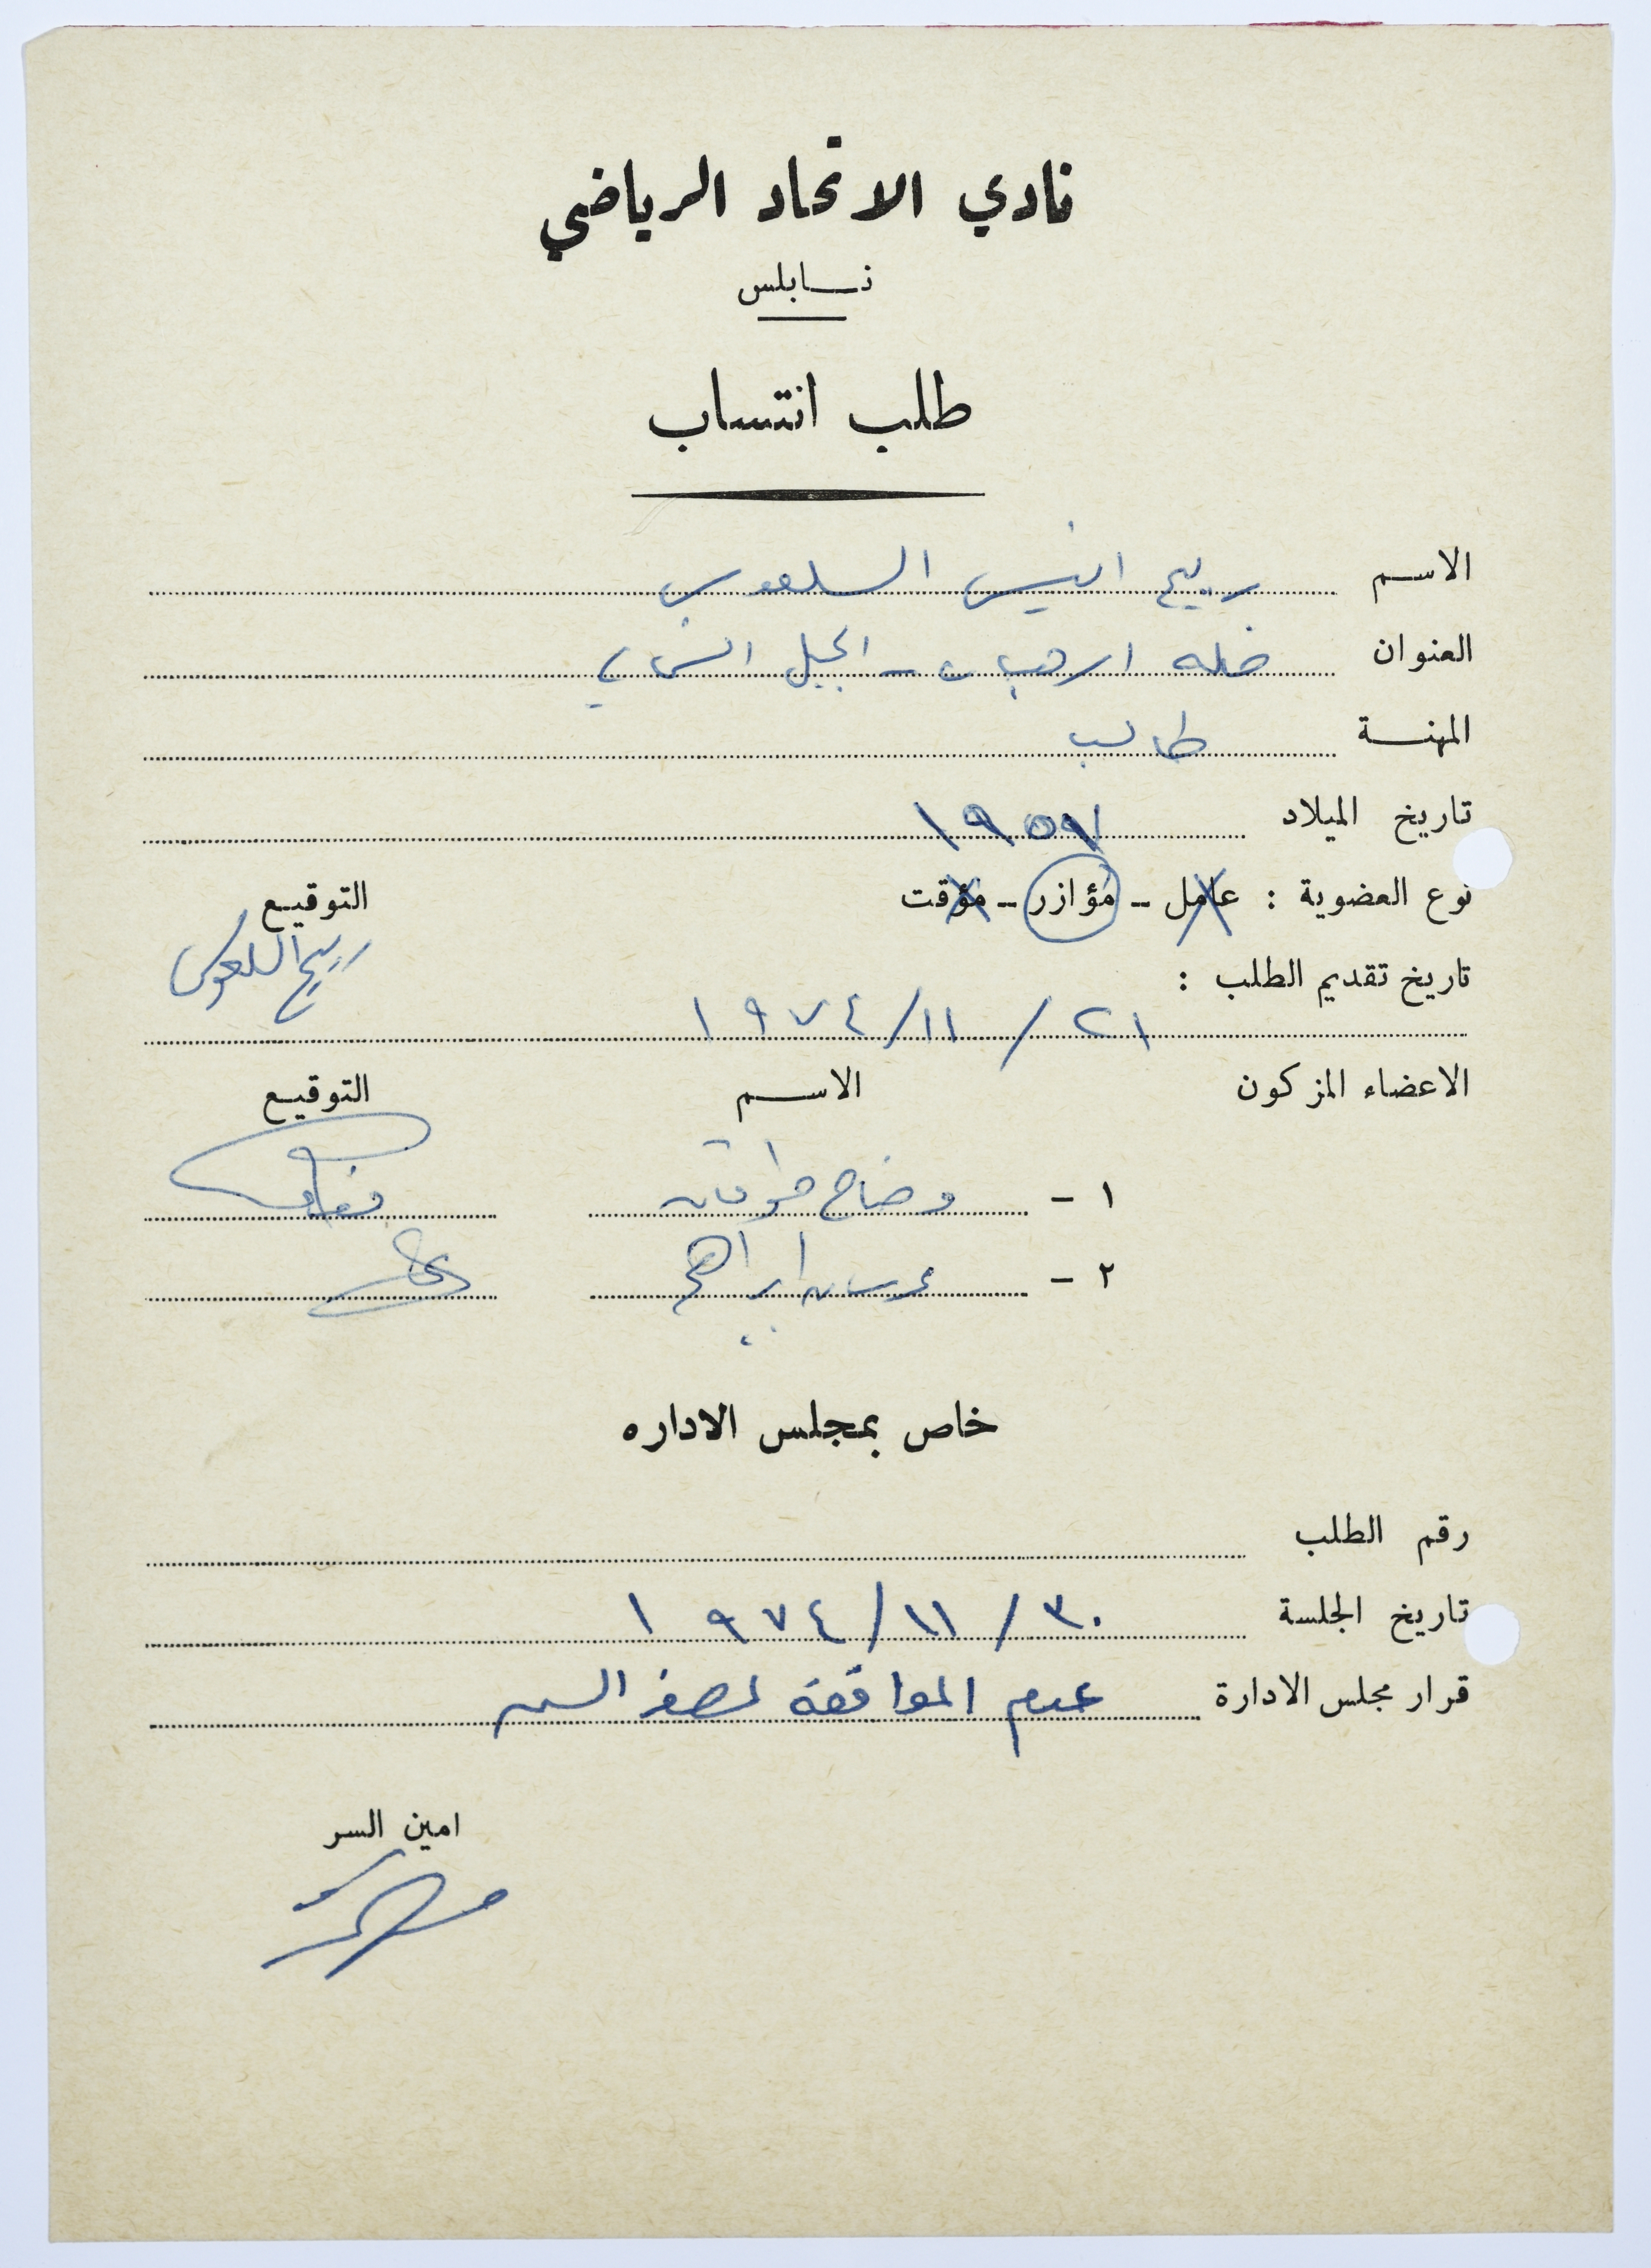 نادي الاتحاد الرياضي
نابلس
طلب انتساب
الاسم ربيع انيس السلعوس
العنوان خلة الرهبان - الجبل الشمالي
المهنة طالب
تاريخ الميلاد ١٩٥٩
نوع العضوية : عامل - مؤازر - مؤقت
التوقيع
ربيع السلعوس
تاريخ تقديم الطلب :
٢١ / ١١/ ١٩٧٤
الاعضاء المزكون الاسم التوقيع
١ - وضاح طوقان
٢ - ابراهيم
خاص بمجلس الاداره
رقم الطلب
تاريخ الجلسة ٣٠ / ١١/ ١٩٧٤
قرار مجلس الادارة عدم الموافقة لصغر السن
امين السر